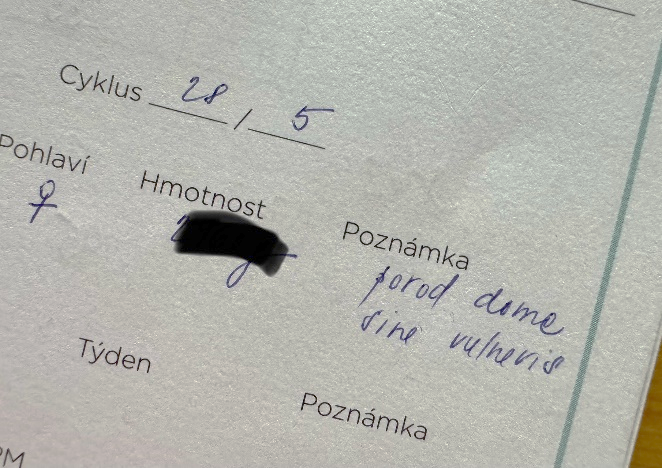 Cyklus 28 / 5
Pohlaví Hmotnost Poznámka
♀ porod doma
sine vulneris
Týden Poznámka
PM